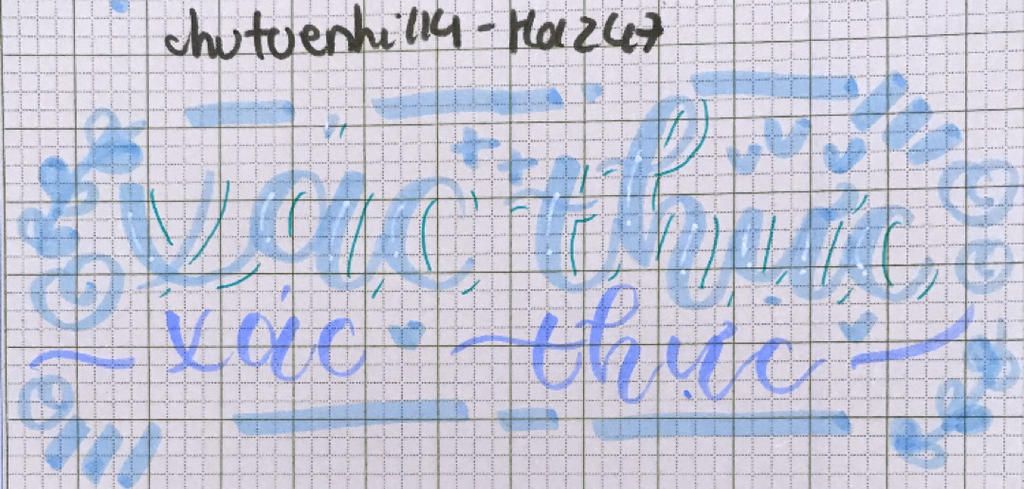 chutuenhi114 - Hoc247
xác thực
xác thực